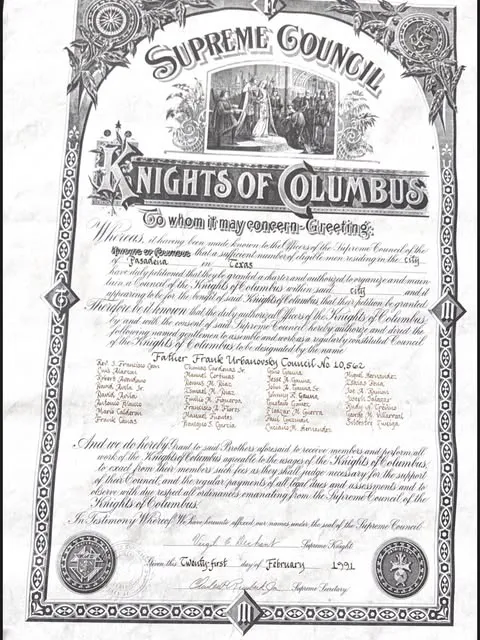 SUPREME COUNCIL
KNIGHTS OF COLUMBUS
To whom it may concern - Greeting:
Whereas, it having been made known to the Officers of the Supreme Council of the
Knights of Columbus that a sufficient number of eligible men residing in the city
of Pasadena in Texas
have duly petitioned that they be granted a charter and authorized to organize and main-
tain a Council of the Knights of Columbus within said city and it
appearing to be for the benefit of said Knights of Columbus that their petition be granted
Therefore be it known that the duly authorized Officers of the Knights of Columbus,
by and with the consent of said Supreme Council hereby authorize and direct the
following named gentlemen to assemble and work as a regularly constituted Council
of the Knights of Columbus to be designated by the name
Father Frank Urbanovsky Council No 10,562
Luis Alarcon Manuel Cortinas Jesse A. Gauna Isaias Pena
David Avila Ismael M. Diaz Johnny R. Gauna Joseph Salazar
Mario Calderon Francisco A. Flores
Frank Casas Manuel Fuentes Paul Guzman
And we do hereby Grant to said Brothers aforesaid to receive members and perform all
work of the Knights of Columbus agreeable to the usages of the Knights of Columbus,
to exact from their members such fees as they shall judge necessary for the support
of their Council, and the regular payments of all legal dues and assessments and to
observe with due respect all ordinances emanating from the Supreme Council of the
Knights of Columbus.
In Testimony Whereof, We have hereunto affixed our names under the seal of the Supreme Council
Virgil C. Dechant Supreme Knight
Given this Twenty-first day of February 1991
Supreme Secretary